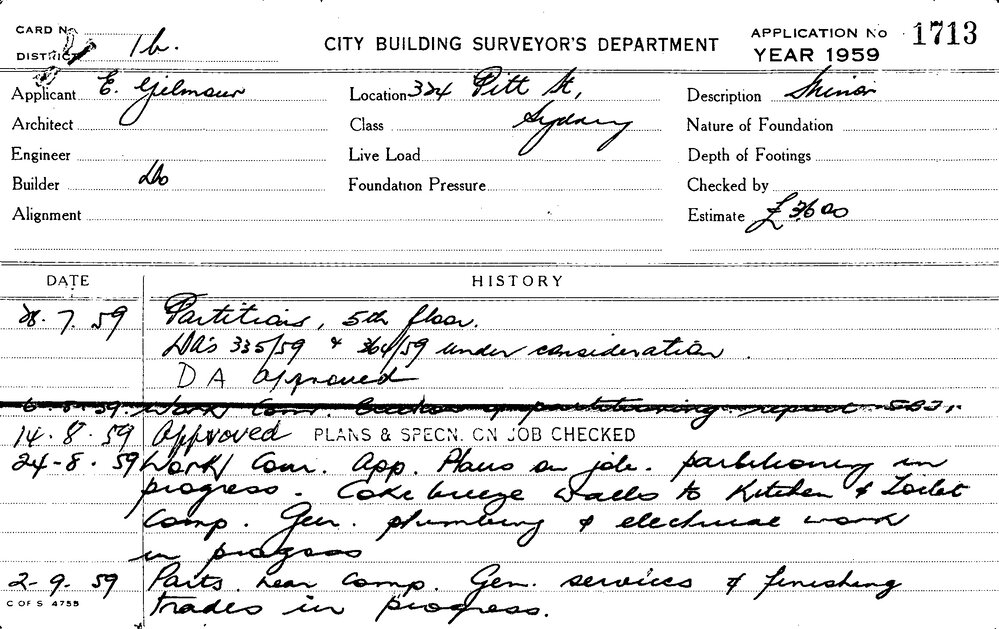 CARD No
DISTRICT 1b.
CITY BUILDING SURVEYOR'S DEPARTMENT
APPLICATION No 1713
YEAR 1959
Applicant E. Gilmour
Location 324 Pitt St,
Description Minor
Architect
Class Sydney
Nature of Foundation
Engineer
Live Load
Depth of Footings
Builder Do
Foundation Pressure
Checked by
Alignment
Estimate £3600
DATE HISTORY
28.7.59 Partitions, 5th floor.
DA's 335/59 & 364/59 under consideration.
DA approved
6.8.59. Work Com. of partitioning report
14.8.59 Approved PLANS & SPECN. ON JOB CHECKED
24-8.59 Work Com. App. Plans on job. partitioning in
progress. Coke breeze walls to Kitchen & Toilet
Comp. Gen. plumbing & electrical work
in progress
2-9.59 Parts. near comp. Gen. services & finishing
trades in progress.
C OF S 4755